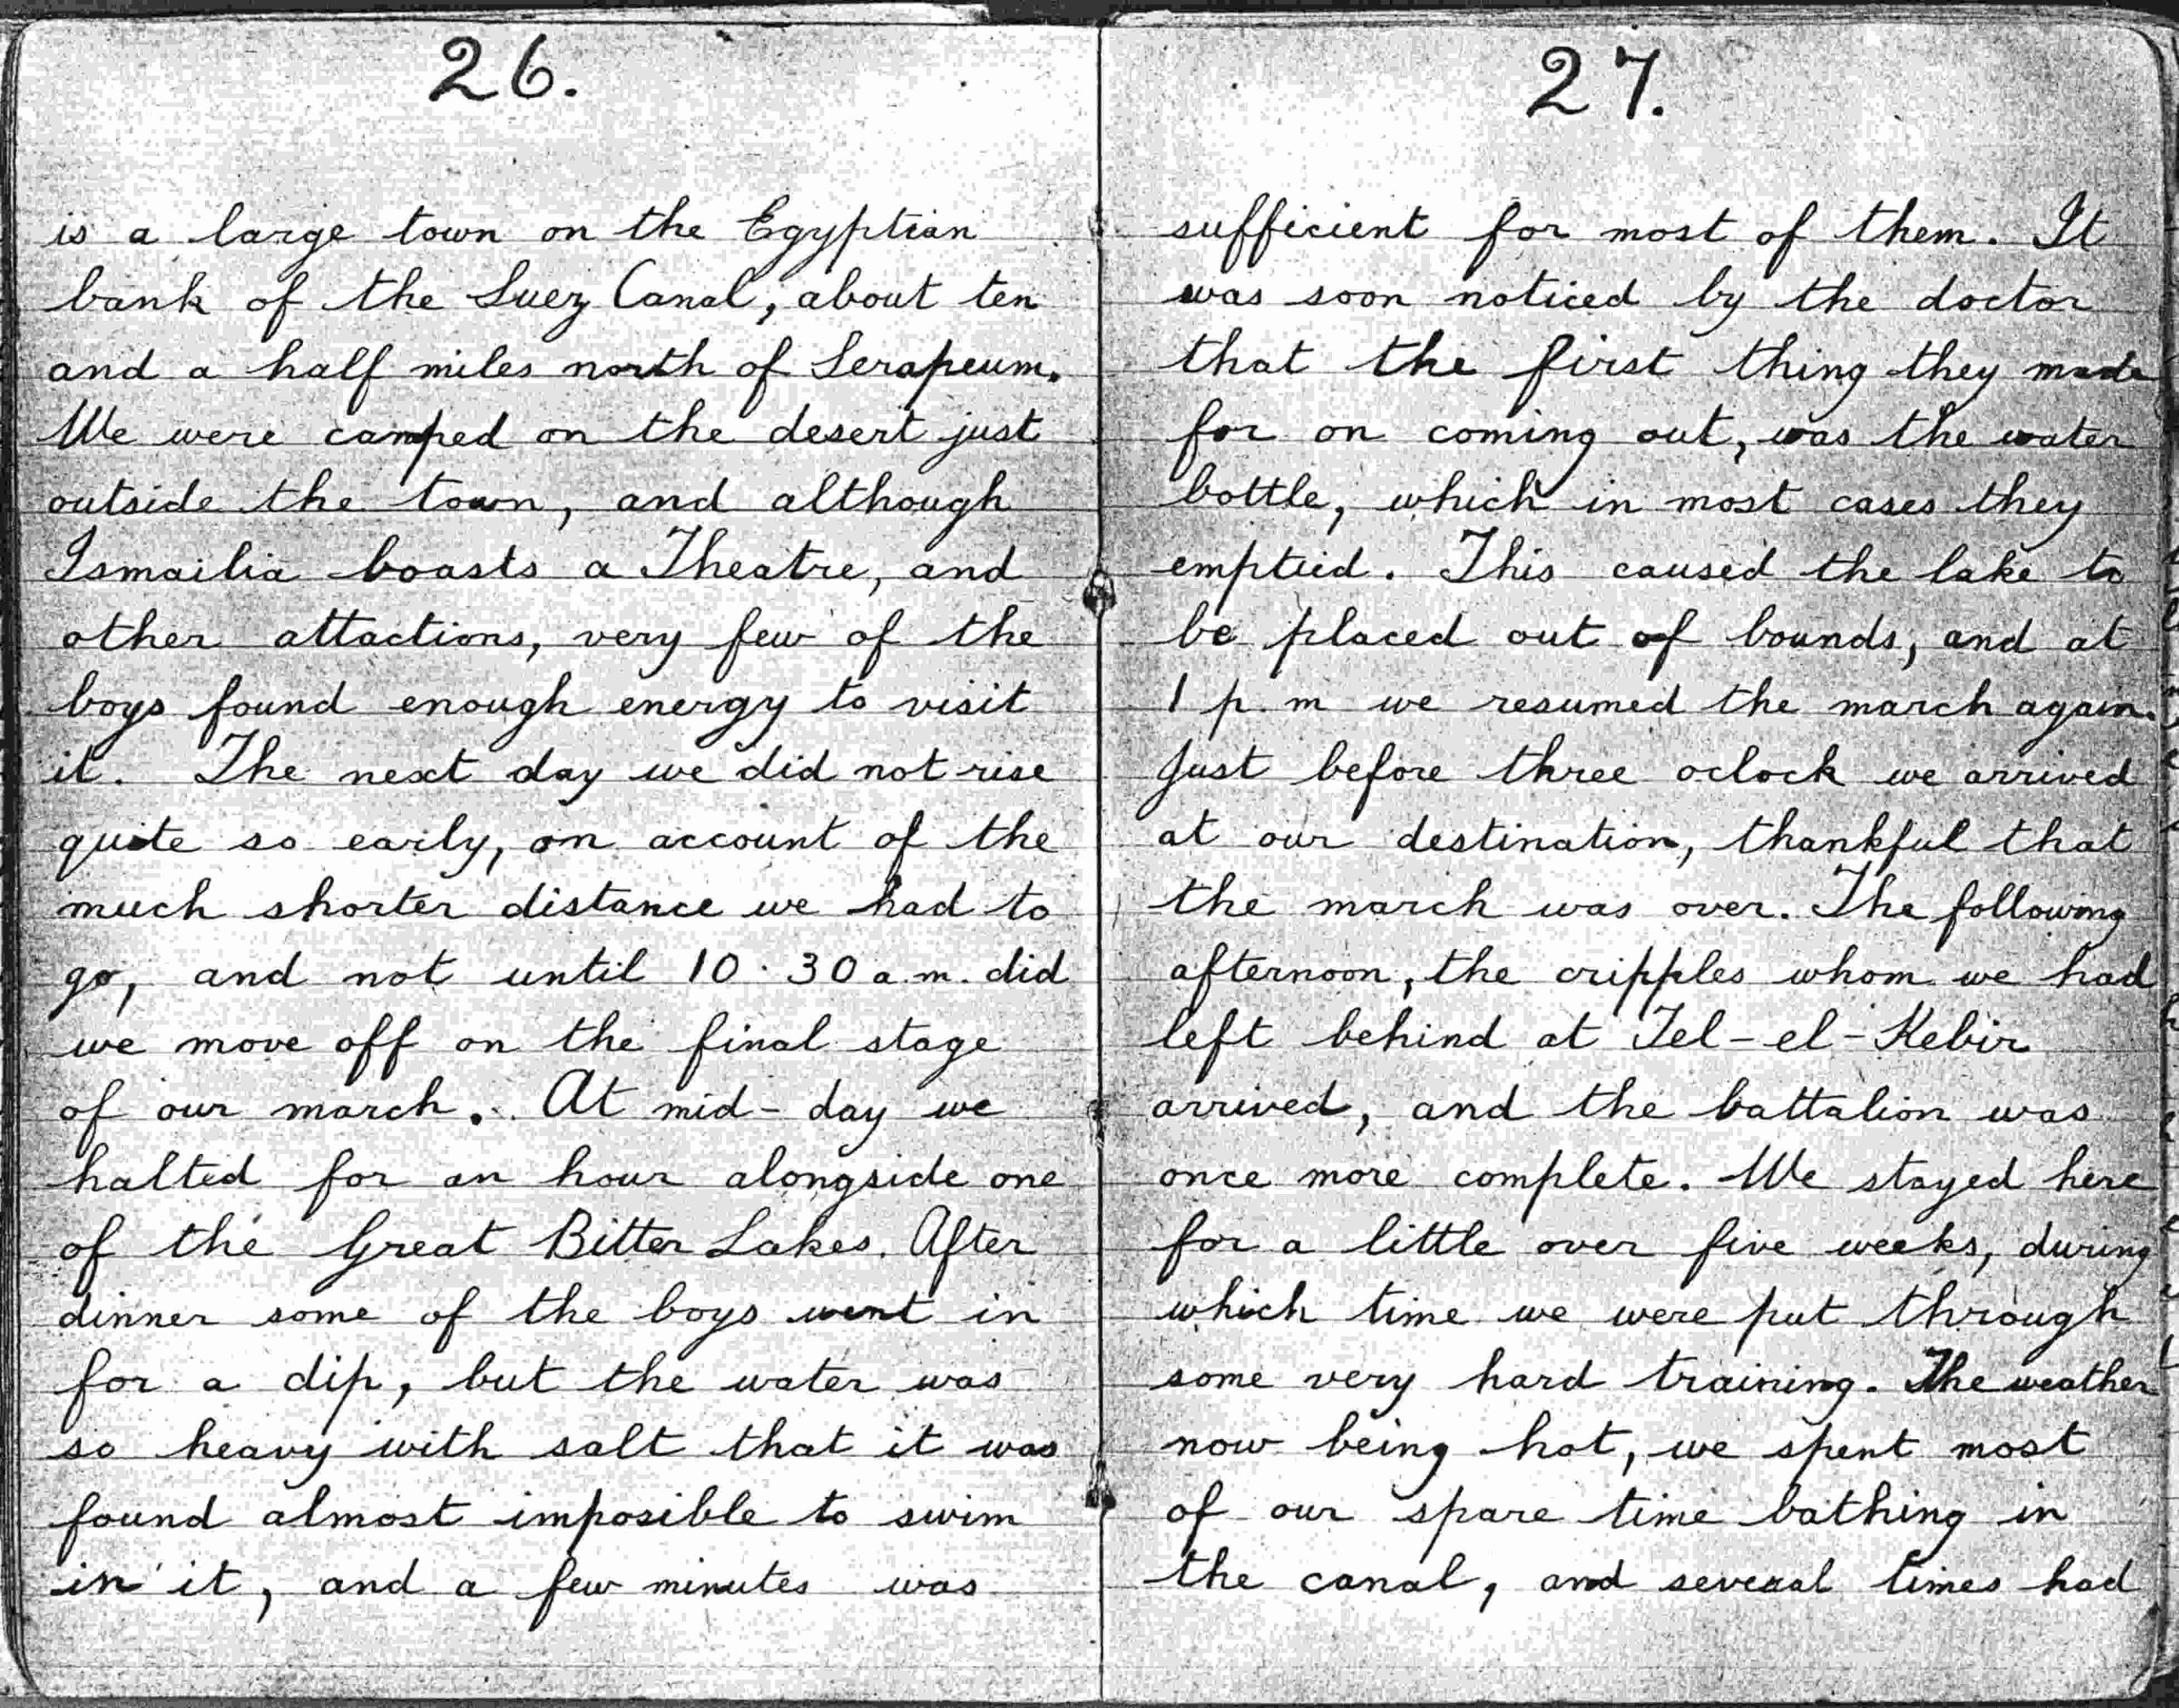 26.
is a large town on the Egyptian
bank of the Suez Canal, about ten
and a half miles north of Serapeum.
We were camped on the desert just
outside the town, and although
Ismailia boasts a Theatre, and
other attactions, very few of the
boys found enough energy to visit
it. The next day we did not rise
quite so early, on account of the
much shorter distance we had to
go, and not until 10.30 a.m. did
we move off on the final stage
of our march. At mid-day we
halted for an hour alongside one
of the Great Bitter Lakes. After
dinner some of the boys went in
for a dip, but the water was
so heavy with salt that it was
found almost imposible to swim
in it, and a few minutes was
27.
sufficient for most of them. It
was soon noticed by the doctor
that the first thing they made
for on coming out, was the water
bottle, which in most cases they
emptied. This caused the lake to
be placed out of bounds, and at
1 p.m we resumed the march again.
Just before three oclock we arrived
at our destination, thankful that
the march was over. The following
afternoon, the cripples whom we had
left behind at Tel-el-Kebir
arrived, and the battalion was
once more complete. We stayed here
for a little over five weeks, during
which time we were put through
some very hard training. The weather
now being hot, we spent most
of our spare time bathing in
the canal, and several times had